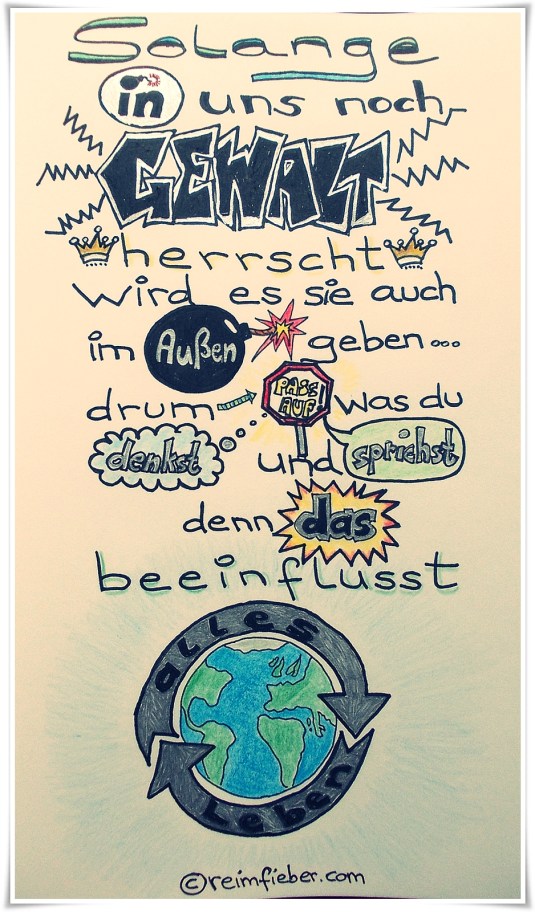 Solange
in uns noch
GEWALT
herrscht
wird es sie auch
im Außen geben...
drum PASS AUF! was du
denkst und sprichst
denn das
beeinflusst
alles
Leben
©reimfieber.com